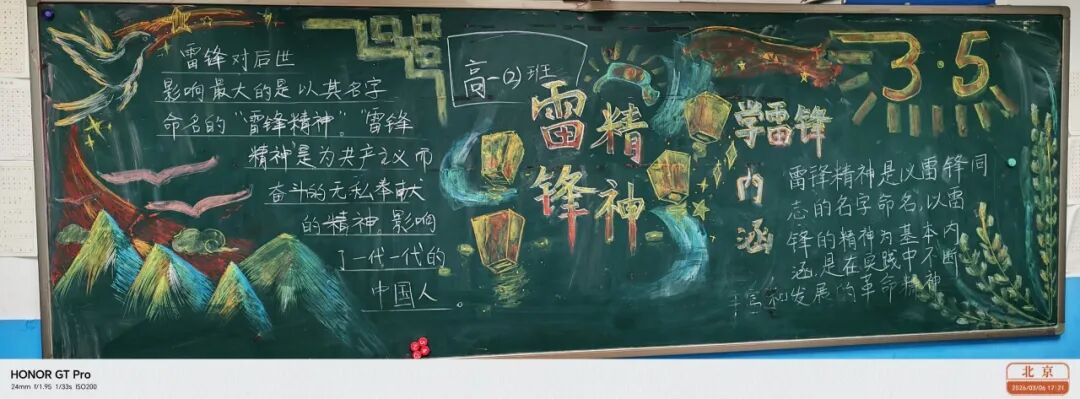 雷锋对后世
影响最大的是以其名字
命名的"雷锋精神"。"雷锋
精神"是为共产主义而
奋斗的无私奉献
的精神,影响
了一代一代的
中国人。
高一(2)班
雷锋
精神
学雷锋
内涵
3·5
雷锋精神是以雷锋同
志的名字命名,以雷
锋的精神为基本内
涵,是在实践中不断
丰富和发展的革命精神
HONOR GT Pro
24mm f/1.95 1/33s ISO200
北京
2026/03/06 17:21